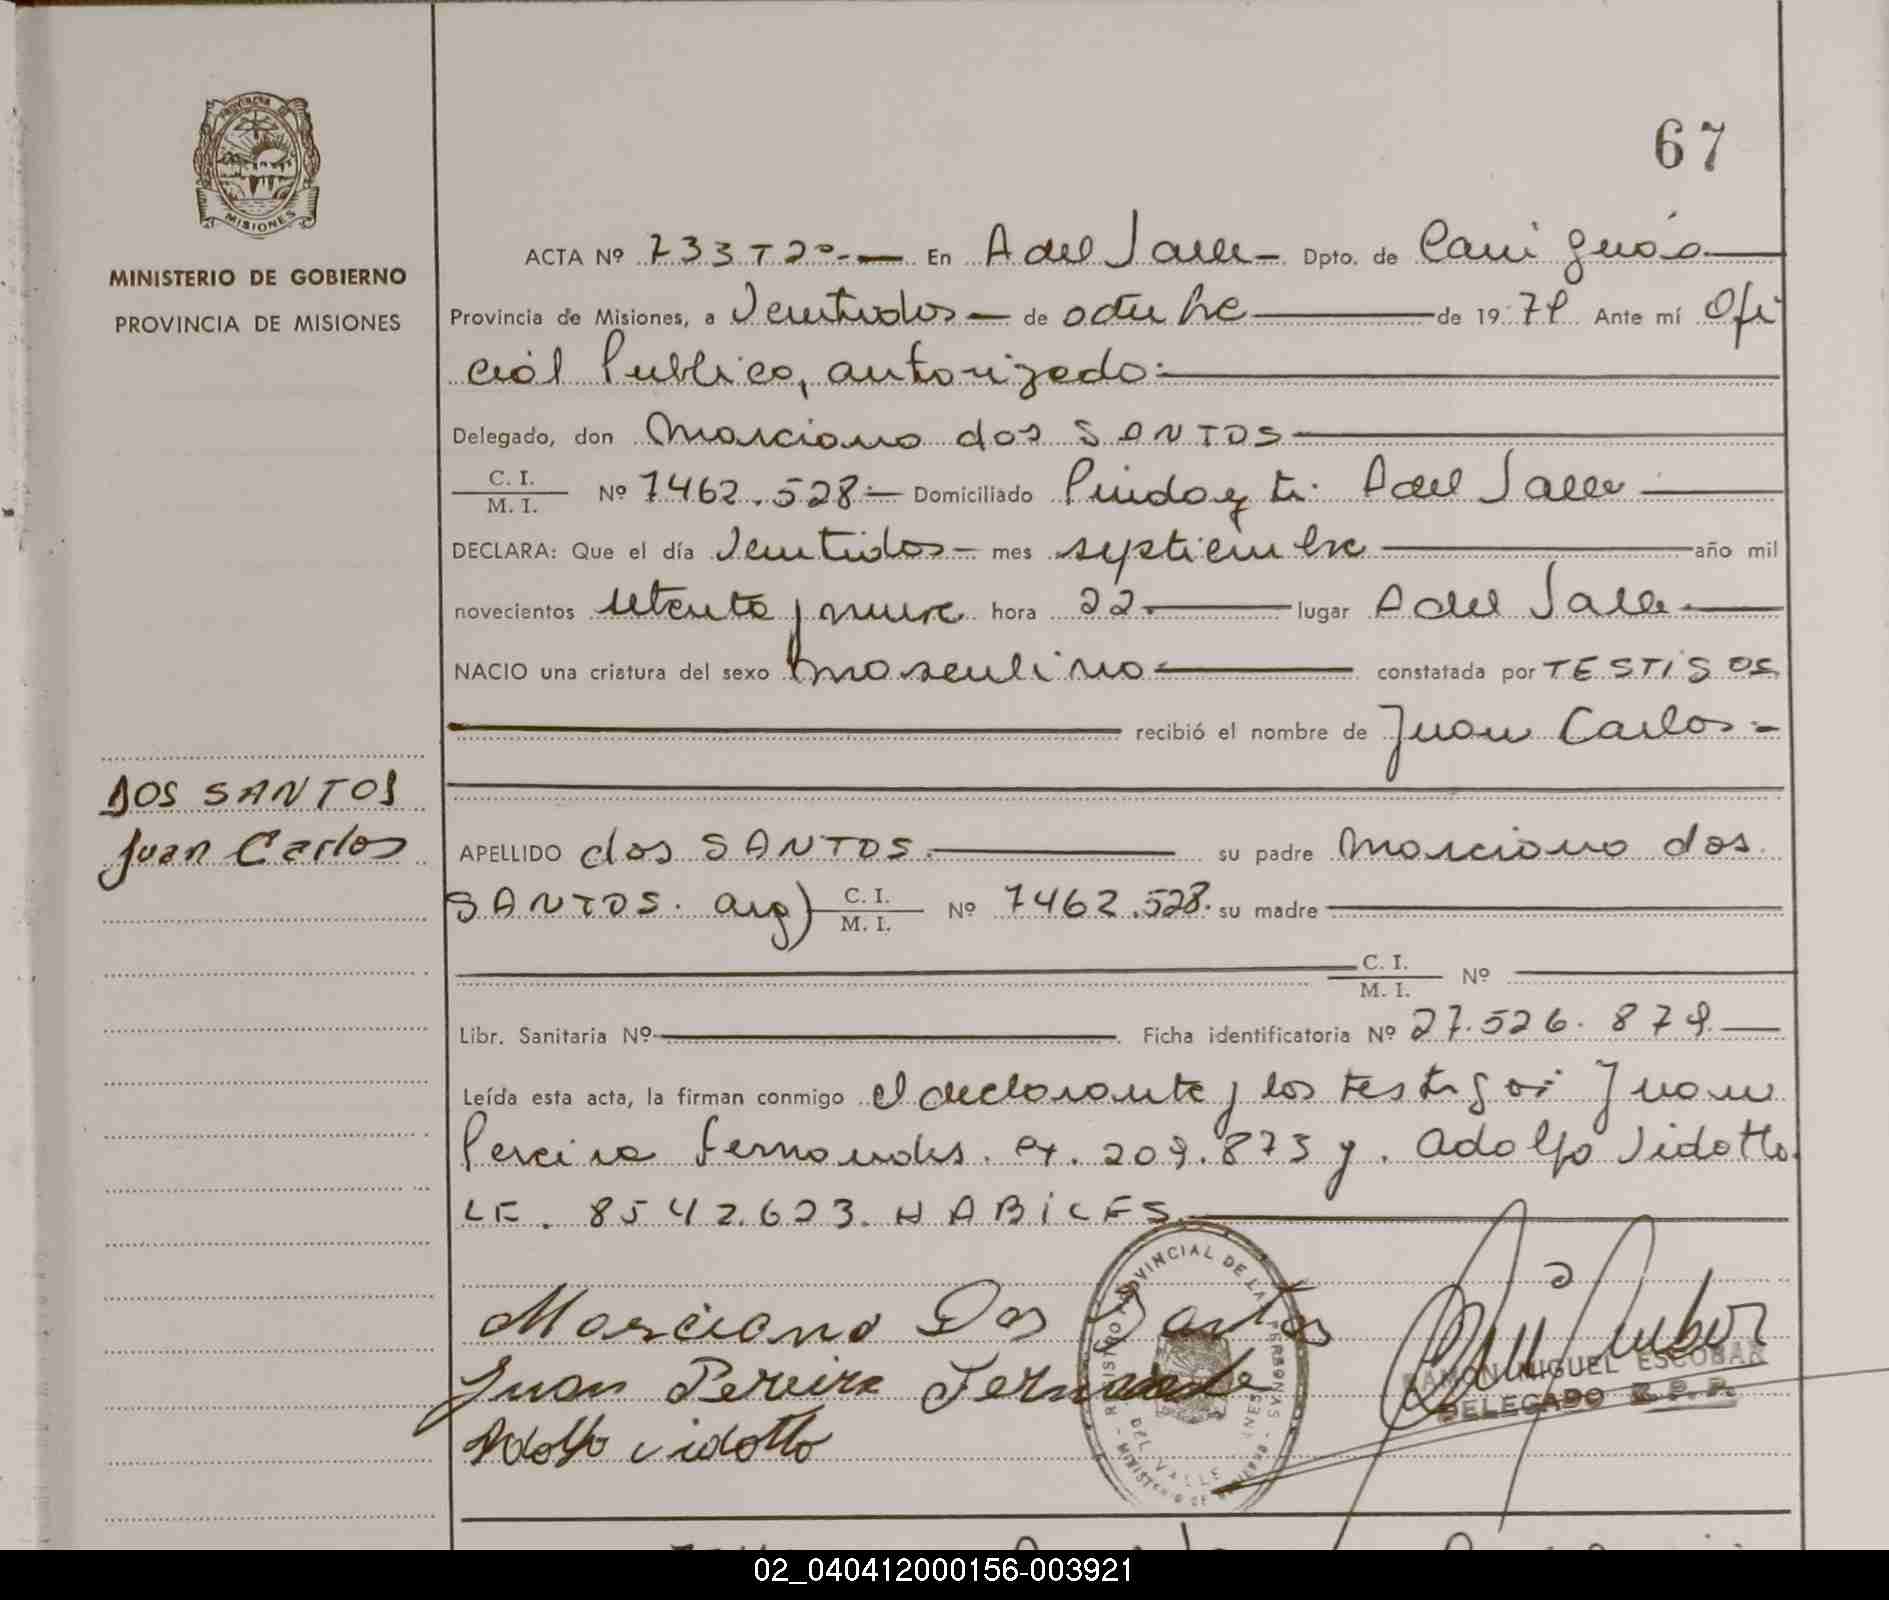 67
MISIONES
MINISTERIO DE GOBIERNO
PROVINCIA DE MISIONES
ACTA Nº 733T2º En A del Valle Dpto. de Cainguás
Provincia de Misiones, a Veintidos de octubre de 1979 Ante mí Ofi
cial Publico, autorizado:
Delegado, don Marciano dos SANTOS
C. I.
M. I.
Nº 7462.528 Domiciliado Pindayti. A del Valle
DECLARA: Que el día Veintidos mes septiembre año mil
novecientos setenta y nueve hora 22. lugar A del Valle
NACIO una criatura del sexo masculino constatada por TESTIGOS
recibió el nombre de Juan Carlos
DOS SANTOS
Juan Carlos
APELLIDO dos SANTOS. su padre Marciano dos
SANTOS. arg) C. I.
M. I.
Nº 7462.528. su madre
C. I.
M. I.
Nº
Libr. Sanitaria Nº Ficha identificatoria Nº 27.526.879
Leída esta acta, la firman conmigo el declarante y los testigos: Juan
Pereira Fernandes. 209.873 y. Adolfo Vidotto
LE. 8542.623. HABILES
Marciano Dos Santos
Juan Pereira Fernande
Adolfo Vidotto
REGISTRO PROVINCIAL DE LAS PERSONAS
DEL VALLE
RAMON MIGUEL ESCOBAR
DELEGADO R. P. P.
02_040412000156-003921